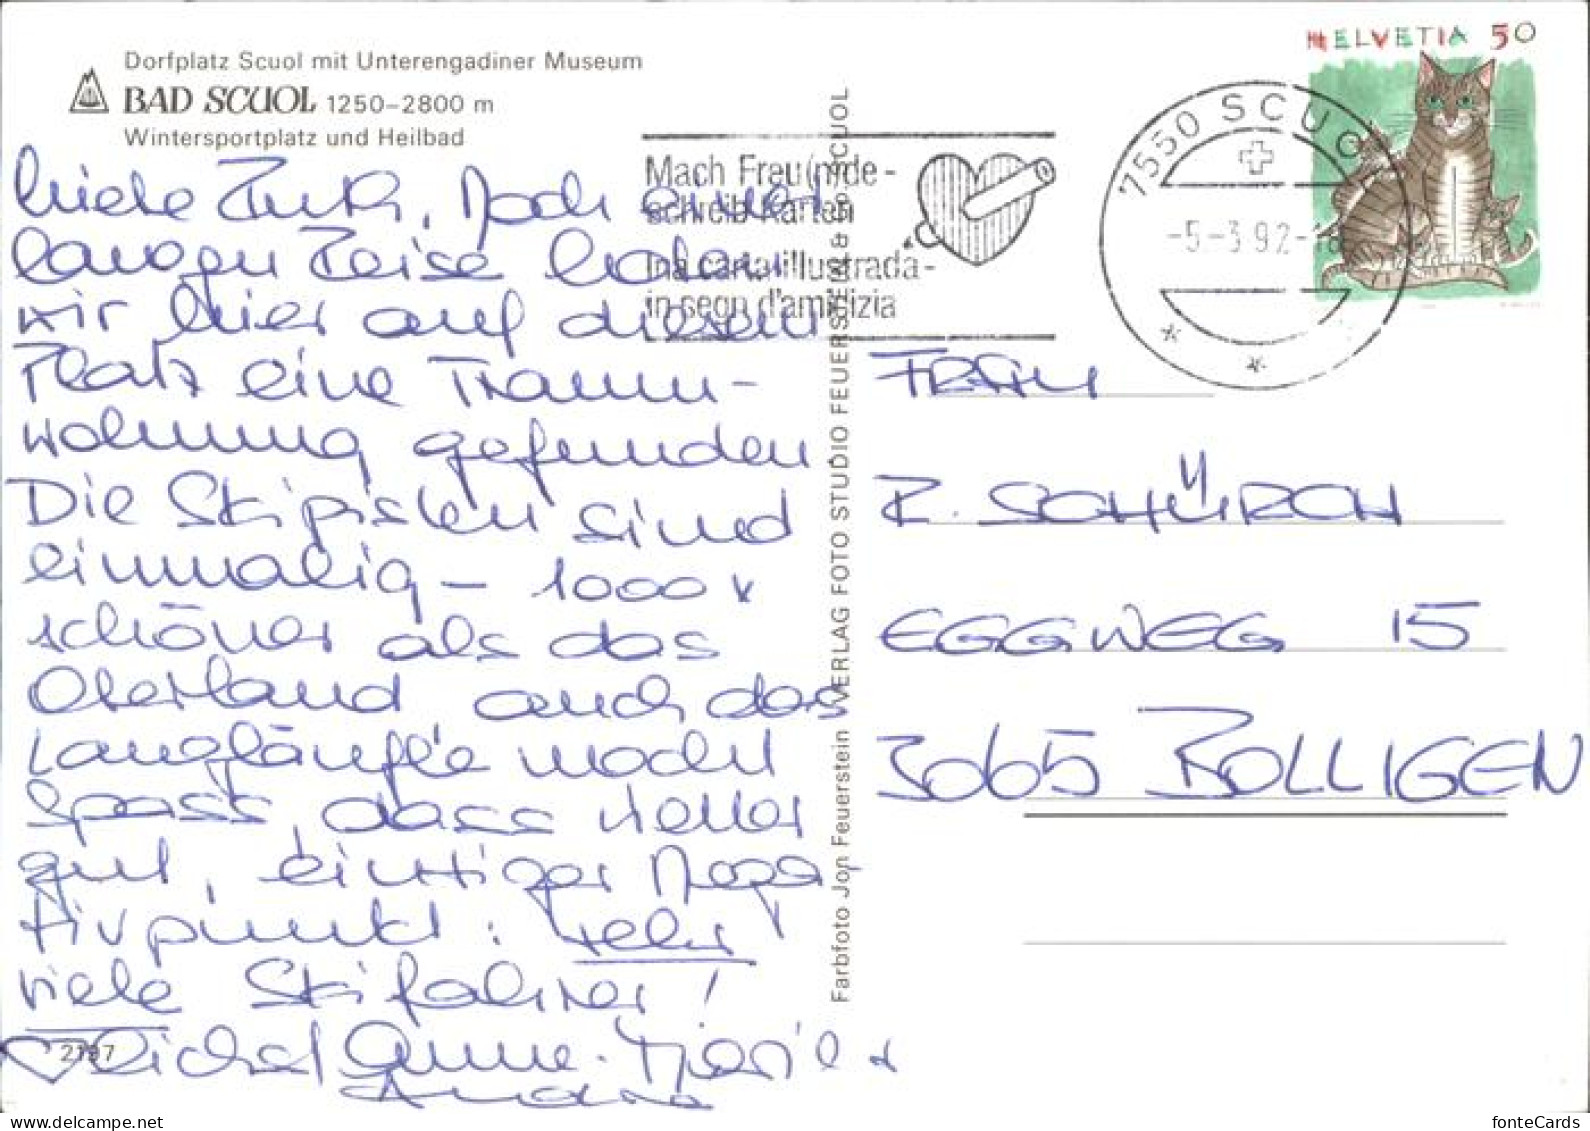 Dorfplatz Scuol mit Unterengadiner Museum
BAD SCUOL 1250-2800 m
Wintersportplatz und Heilbad
HELVETIA 50
7550 SCUOL
-5-3.92-18
Mach Freu(n)de-
schreib Karten
Ina carta illustrada-
in segn d'amicizia
Liebe Ruth, Nach einer
langen Reise haben
wir hier auf diesem
Platz eine Traum-
wohnung gefunden.
Die Skipisten sind
einmalig - 1000 x
schöner als das
Oberland auch das
Langläufle macht
Spass, dass Wetter
gut, einziger Nega-
tivpunkt: sehr
viele Skifahrer!
Michael Anne-Marie +
Andrea
2197
Farbfoto Jon Feuerstein VERLAG FOTO STUDIO FEUERSTEIN SCUOL
FRAU
R. SCHÜRCH
EGGWEG 15
3065 BOLLIGEN
fonteCards